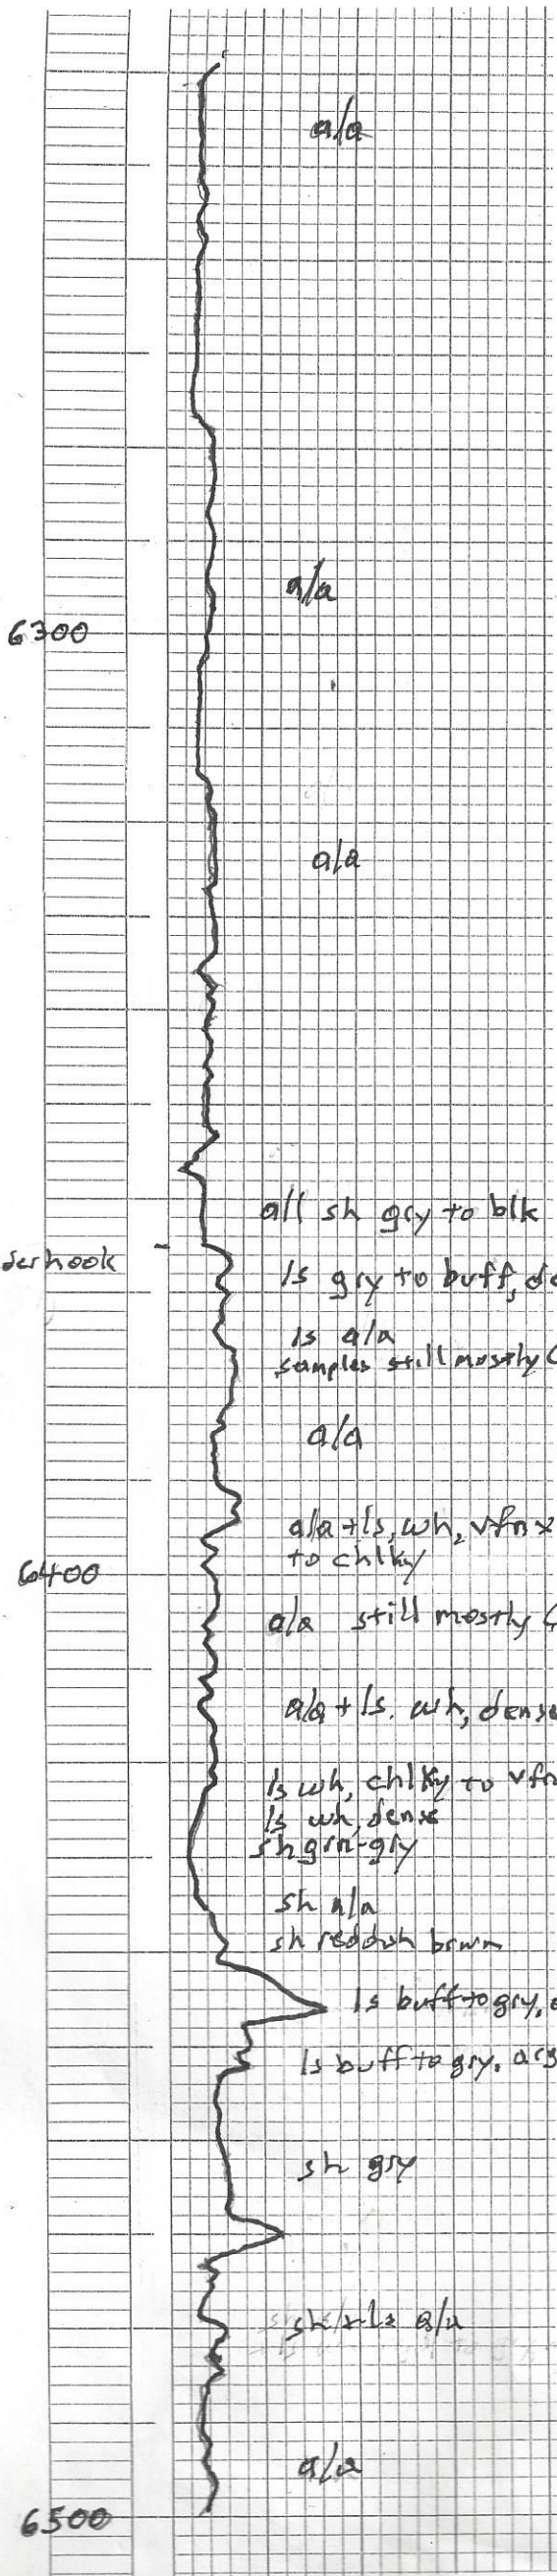 a/a
a/a
6300
a/a
all sh gry to blk
derhook
ls gry to buff, de
ls a/a
samples still mostly
a/a
a/a + ls, wh, vfnx
to chlky
6400
a/a still mostly
a/a + ls. wh, dense
ls wh, chlky to vfn
ls wh, dense
sh grn-gry
sh a/a
sh reddish brwn
ls buff to gry,
ls buff to gry, arg
sh gry
a/a
a/a
6500